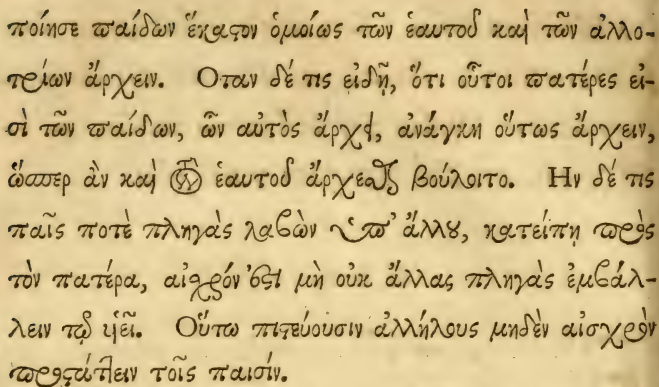 ποίησε παίδων ἕκαστον ὁμοίως τῶν ἑαυτοῦ καὶ τῶν ἀλλο-
τρίων ἄρχειν. Οταν δέ τις εἰδῇ, ὅτι οὗτοι πατέρες εἰ-
σὶ τῶν παίδων, ὧν αὐτὸς ἄρχει, ἀνάγκη οὕτως ἄρχειν,
ὥσπερ ἂν καὶ τῶν ἑαυτοῦ ἄρχεσθαι βούλοιτο. Ην δέ τις
παῖς ποτὲ πληγὰς λαβὼν ὑπ' ἄλλου, κατείπῃ πρὸς
τὸν πατέρα, αἰσχρόν ἐστι μὴ οὐκ ἄλλας πληγὰς ἐμβάλ-
λειν τῷ υἱεῖ. Οὕτω πιστεύουσιν ἀλλήλους μηδὲν αἰσχρὸν
προστάττειν τοῖς παισίν.